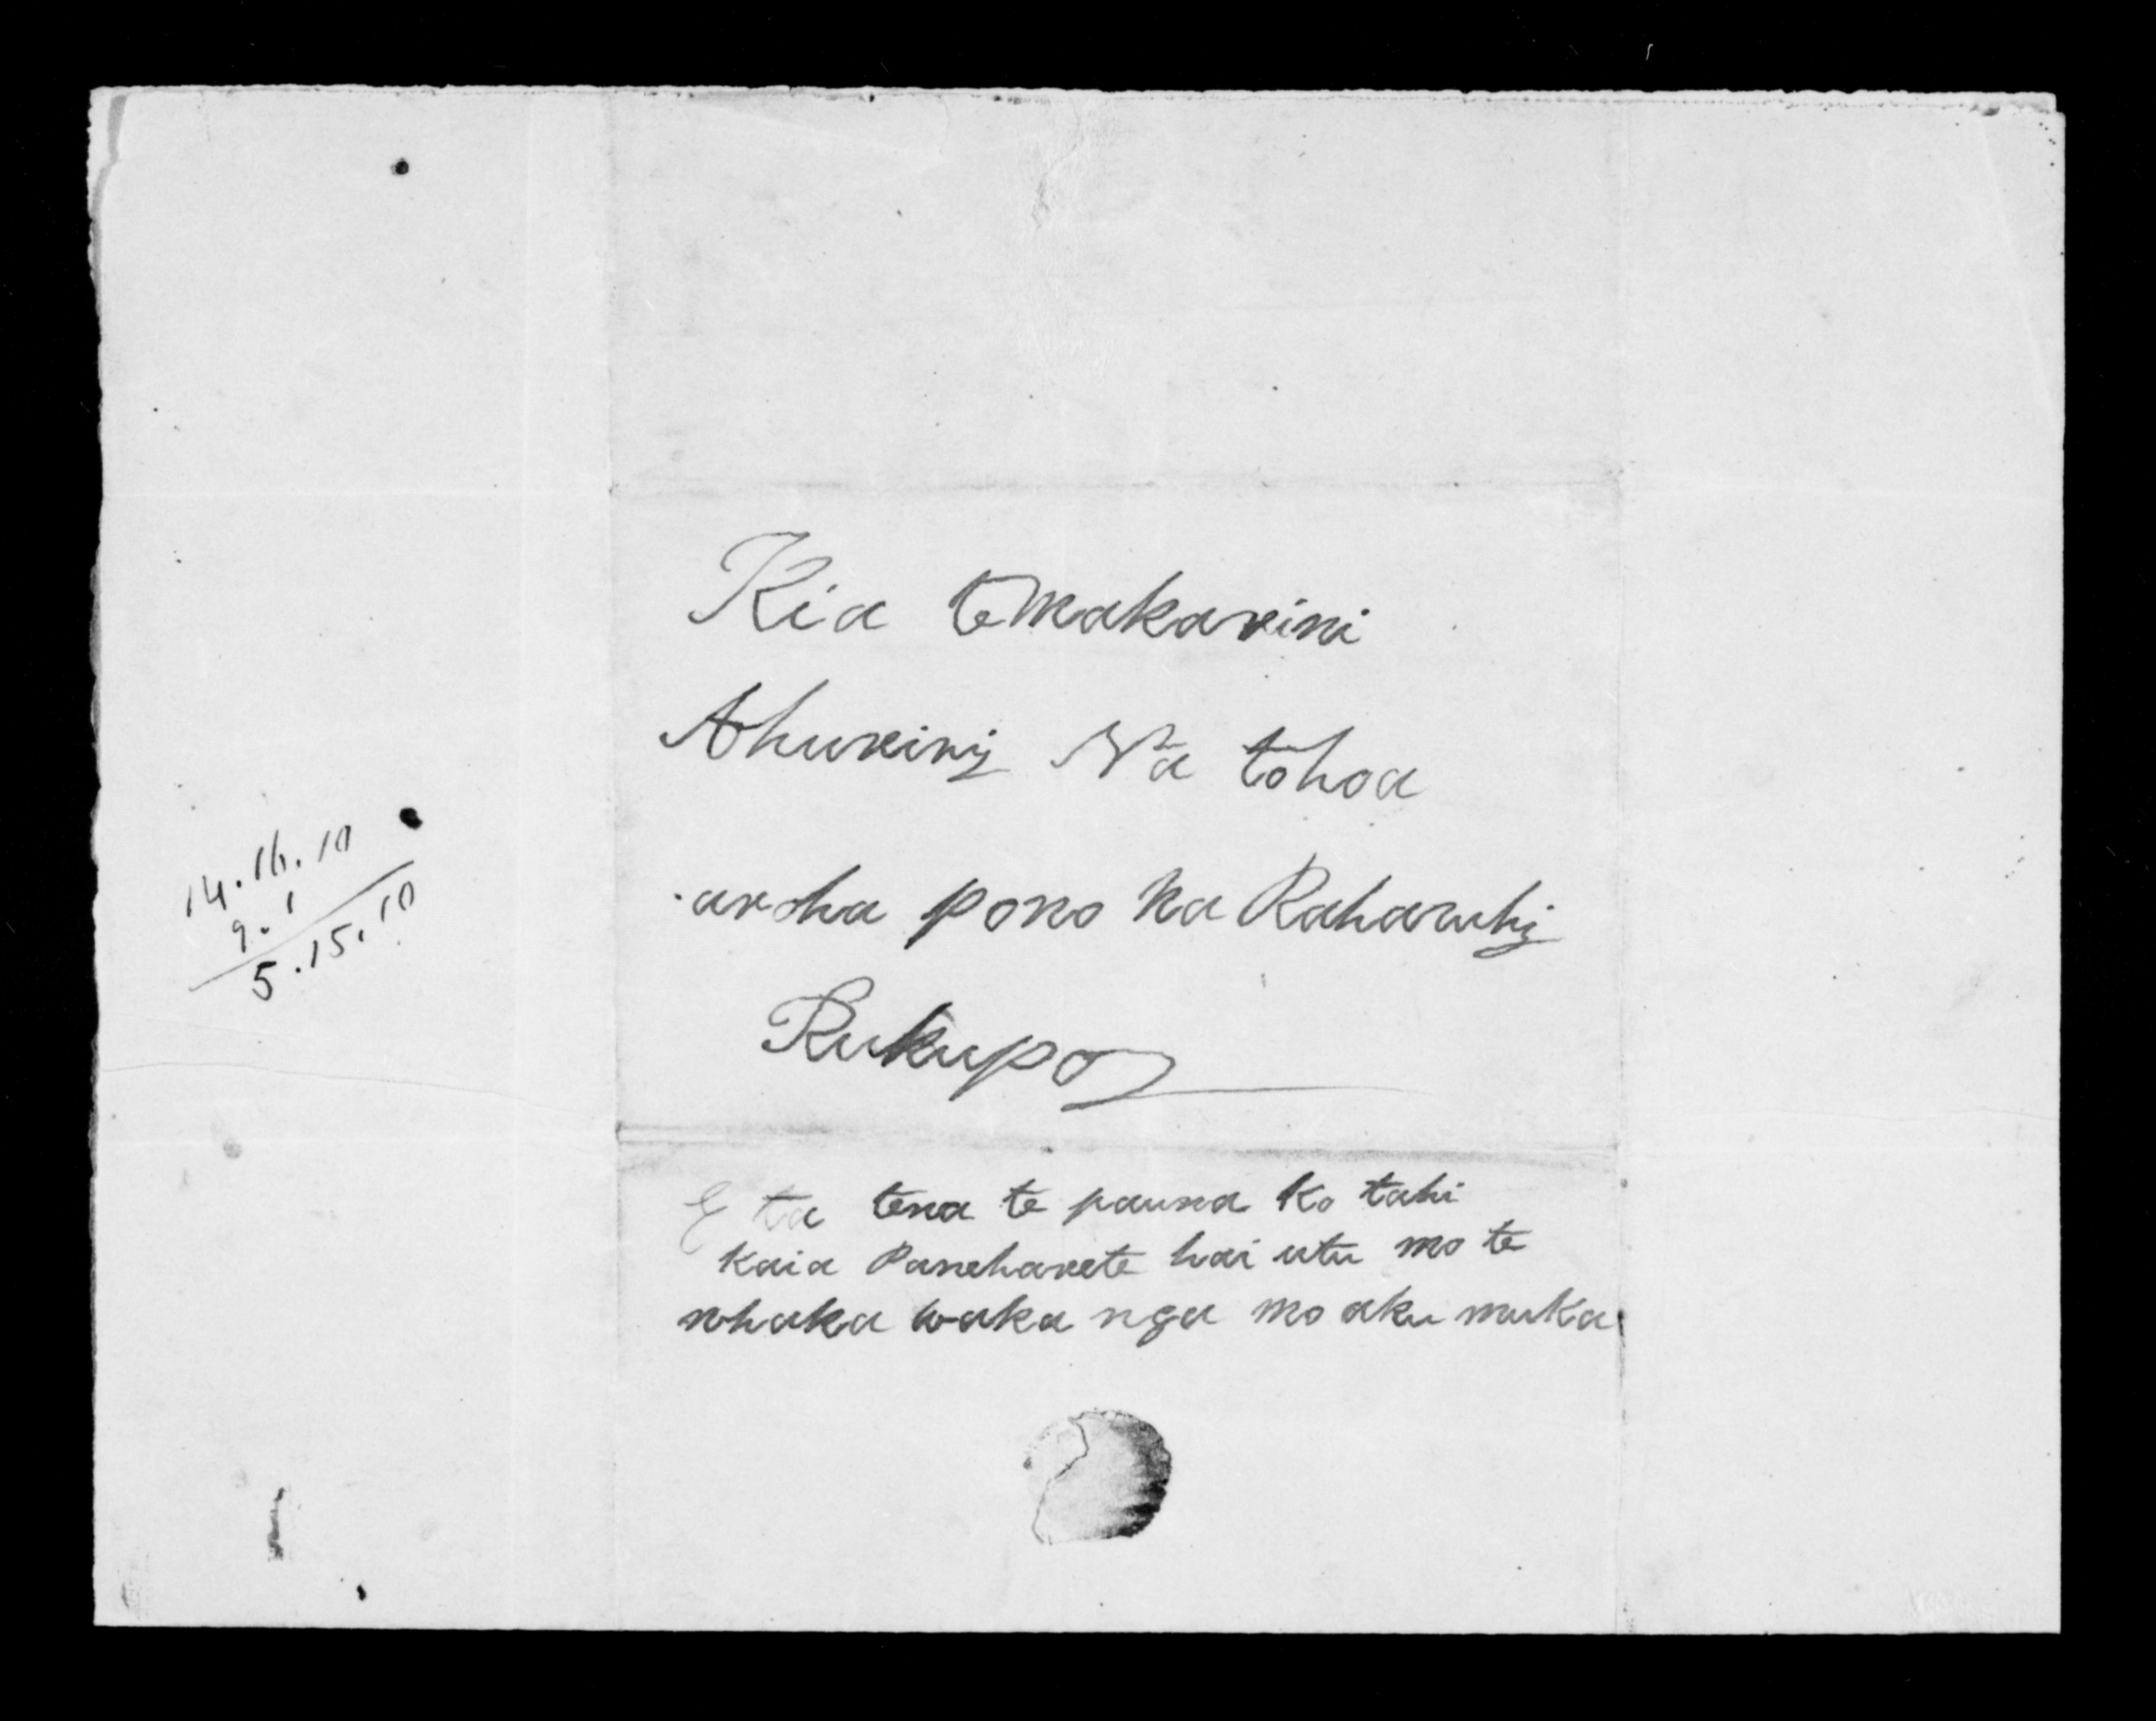 Kia te makarini
Ahuriri Na to hoa
aroha pono na Raharuhi
Rukupo
E ta tena te pauna ko tahi
kaia Panapa hai utu mo te
whaka waka nga mo aku muka
14.16.10
9.1
5.15.10